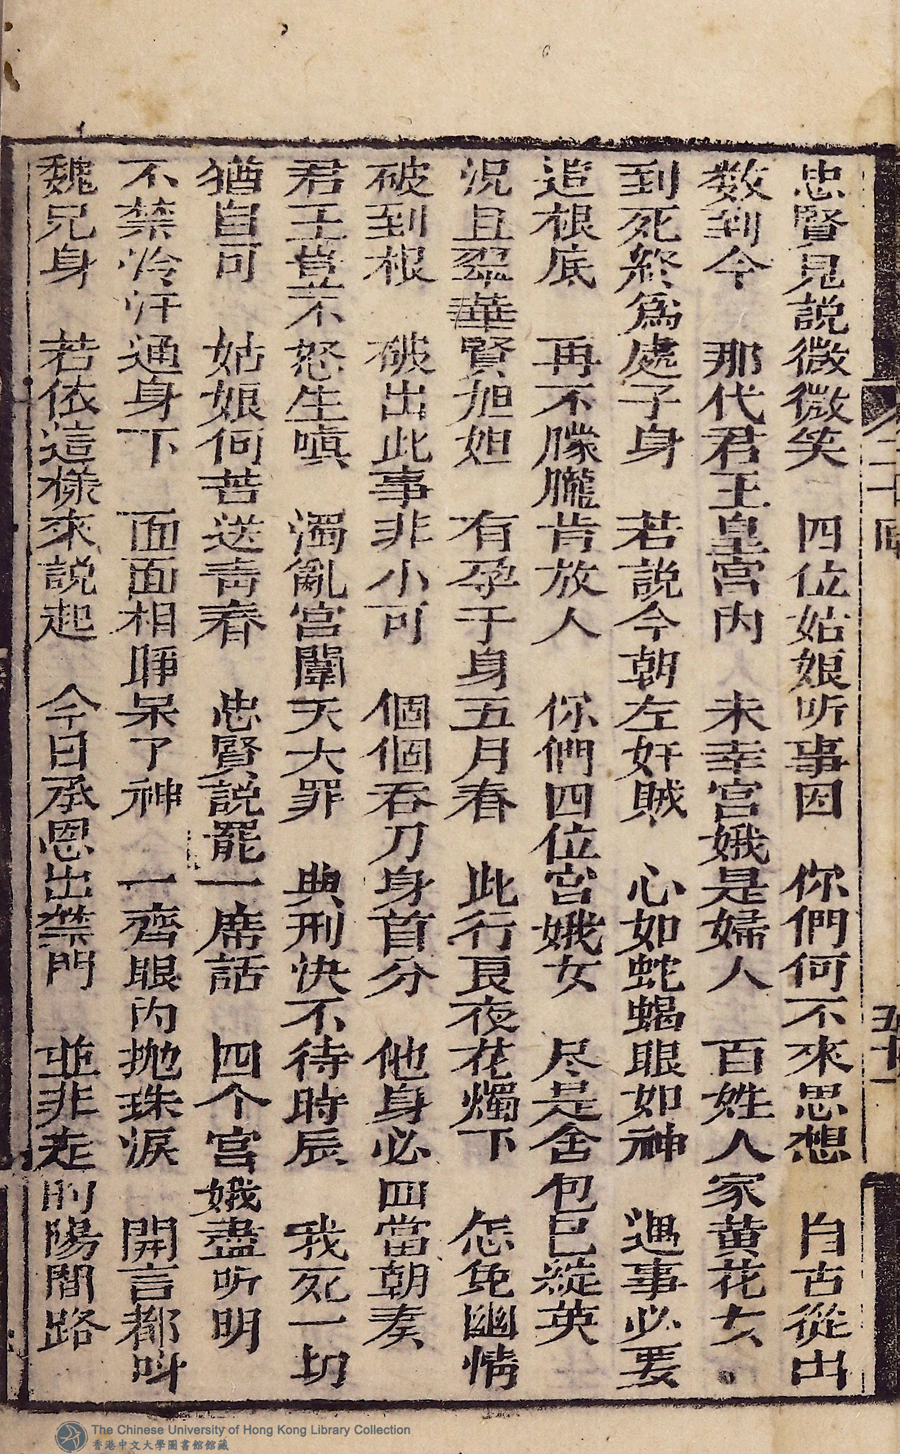 忠賢見說微微笑　四位姑娘听事因　你們何不來思想　自古從山
数到今　那代君王皇宮內　未幸宮娥是婦人　百姓人家黄花女
到死終爲處子身　若說今朝左奸賊　心如蛇蝎眼如神　遇事必要
追根底　再不朦朧肯放人　你們四位宮娥女　尽是含包巳綻英
況且翠華賢妲妲　有孕于身五月春　此行良夜花燭下　怎免幽情
破到根　破出此事非小可　個個吞刀身首分　他身必四當朝奏
君王豈不怒生嗔　濁亂宮闈天大罪　典刑決不待時辰　我死一切
猶自可　姑娘何苦送青春　忠賢說罷一席話　四个宮娥盡听明
不禁冷汗通身下　面面相睜呆了神　一齊眼內拋珠淚　開言都呌
魏兄身　若依這樣來說起　今日承恩出禁門　並非走的陽間路
二十回
五十一
The Chinese University of Hong Kong Library Collection
香港中文大學圖書館館藏